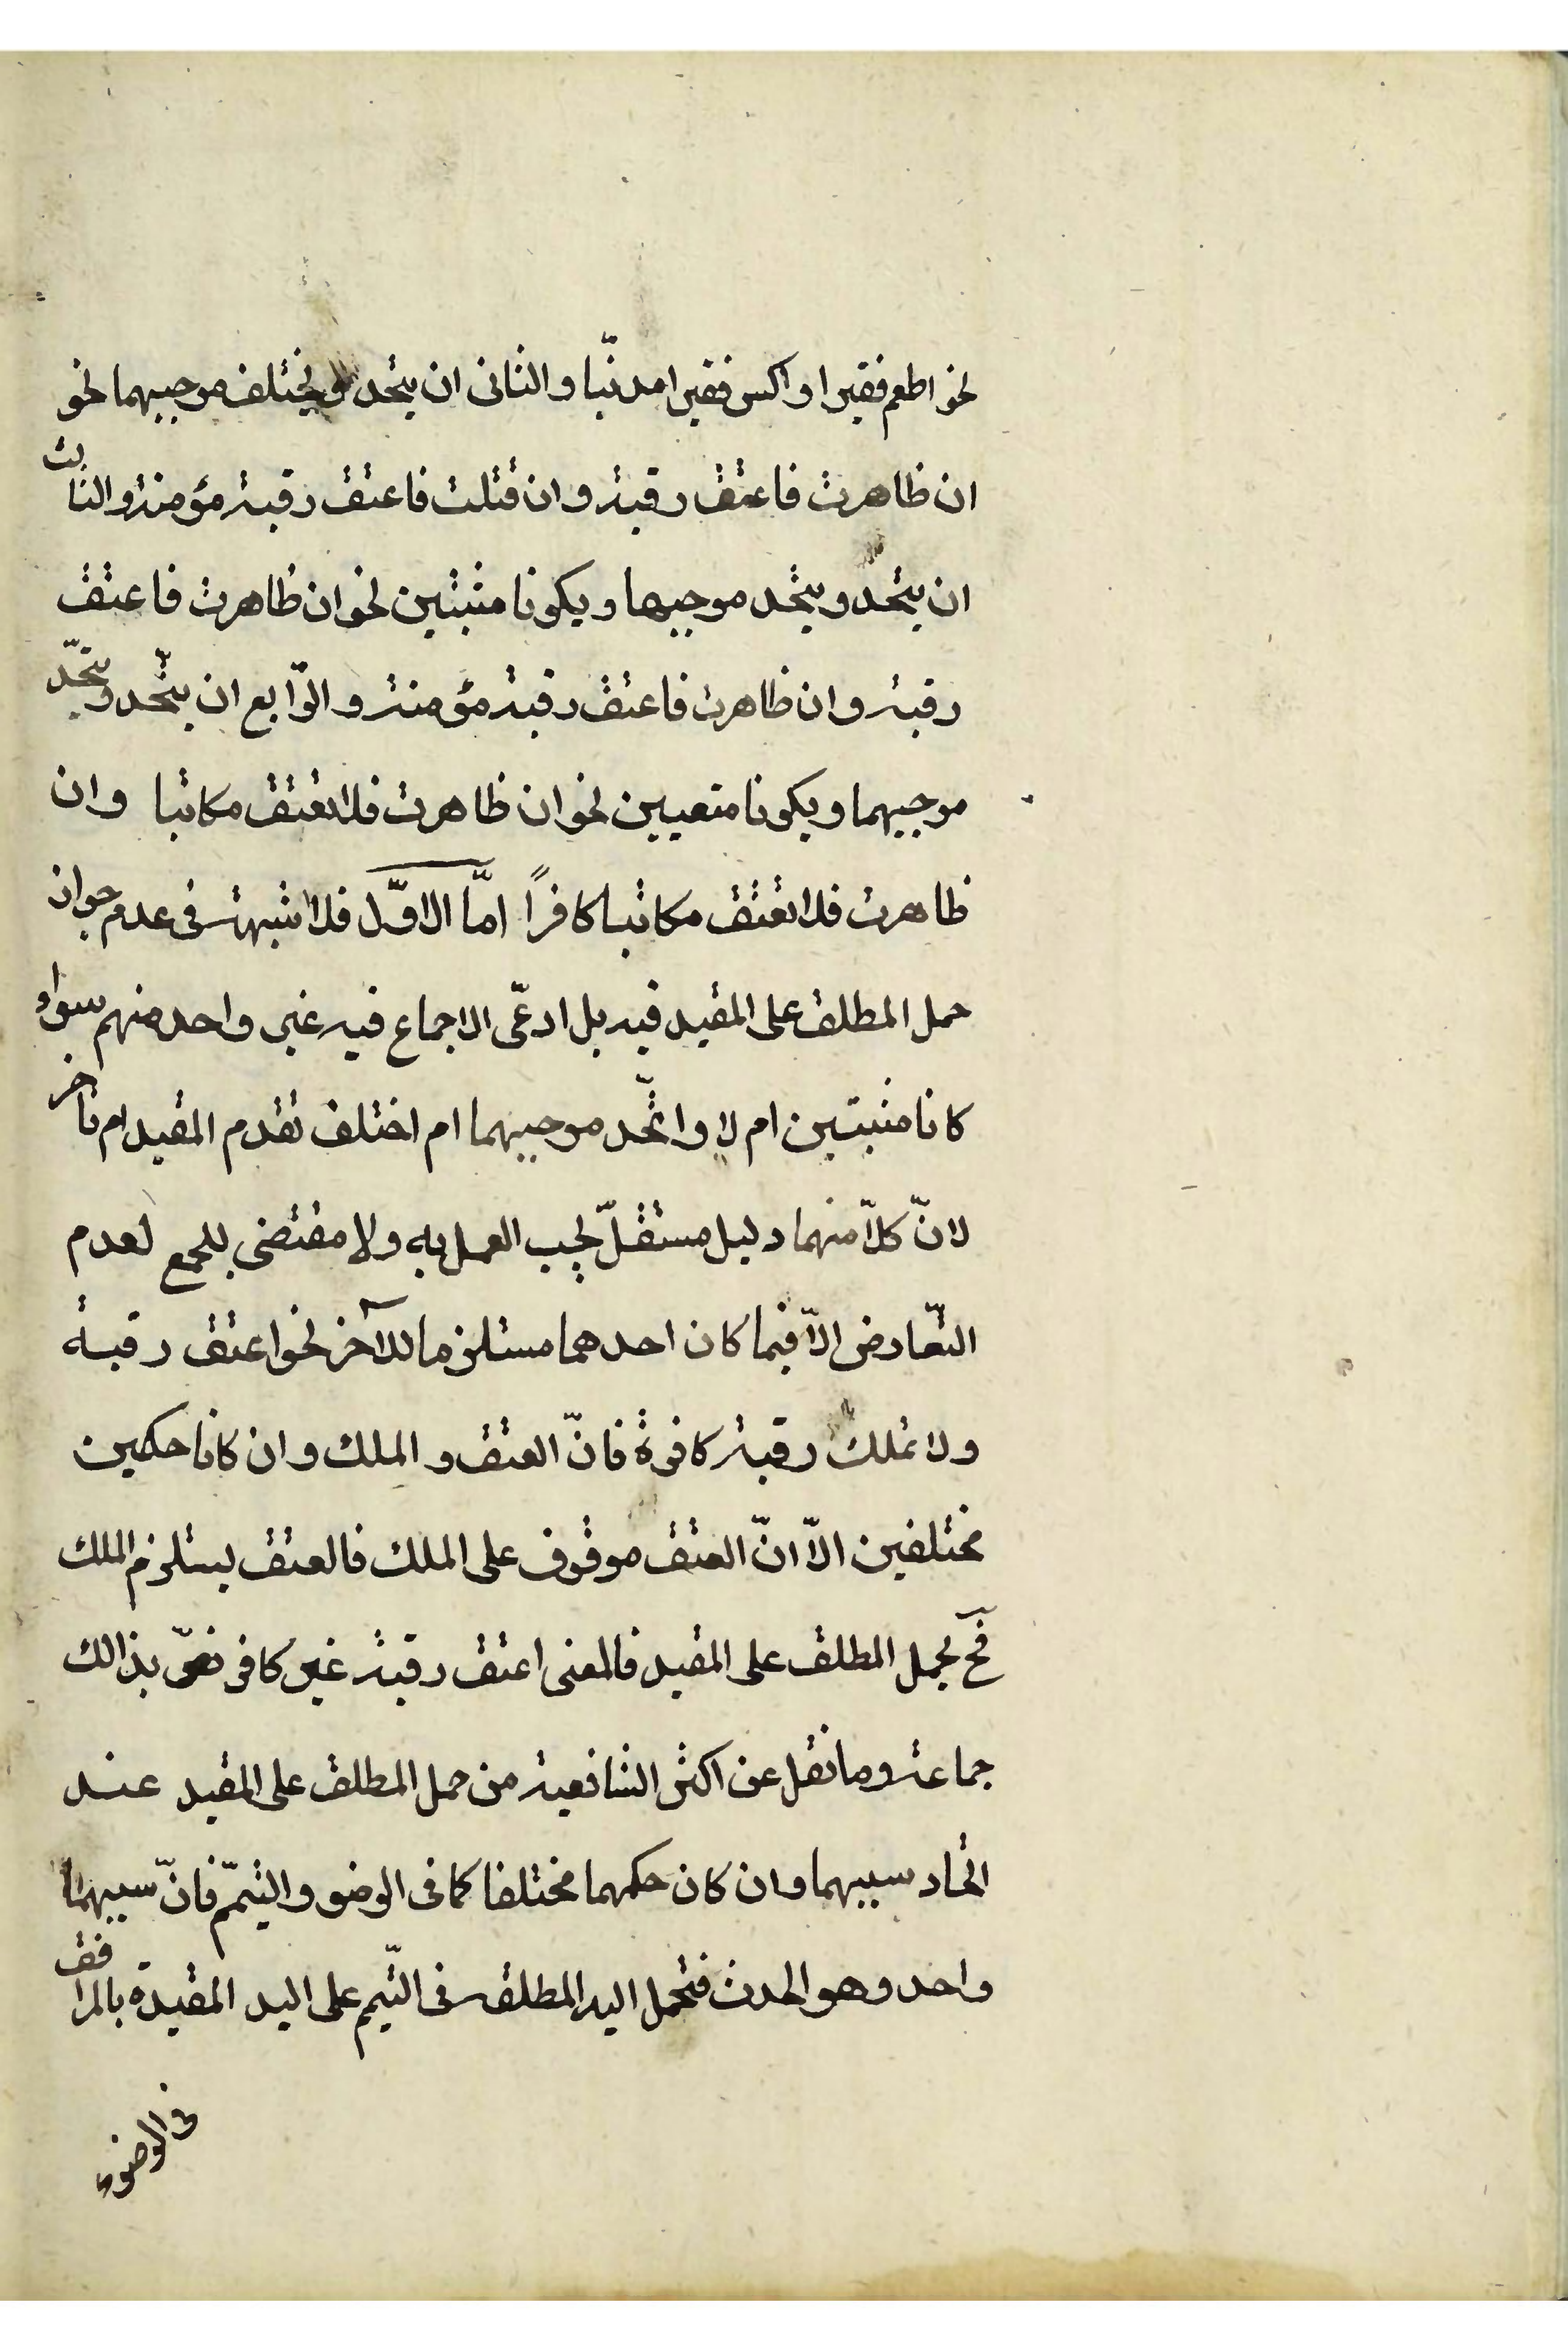 نحو اطعم فقيرا واكس فقيرا مدنيّا والثانى ان يتحد ويختلف موجبهما نحو
ان ظاهرت فاعتق رقبة وان قتلت فاعتق رقبة مؤمنة والثالث
ان يتحد ويتحد موجبهما ويكونا مثبتين نحو ان ظاهرت فاعتق
رقبة وان ظاهرت فاعتق رقبة مؤمنة والرّابع ان يتّحد ويتّحد
موجبيهما ويكونا منفيين نحو ان ظاهرت فلا تعتق مكاتبا وان
ظاهرت فلا تعتق مكاتبا كافرًا امّا الاوّل فلا شبهة فى عدم جواز
حمل المطلق على المقيد فيه بل ادعّى الاجماع فيه غير واحد منهم سواء
كانا مثبتين ام لا واتّحد موجبيهما ام اختلف تقدم المقيد ام تأخر
لانّ كلاّ منهما دليل مستقلّ يجب العمل به ولا مقتضى للجمع لعدم
التّعارض الاّ فيما كان احدهما مستلزما للآخر نحو اعتق رقبة
ولا تملك رقبة كافرة فانّ العتق والملك وان كانا حكمين
مختلفين الاّ انّ العتق موقوف على الملك فالعتق يستلزم الملك
فح يحمل المطلق على المقيد فالمعنى اعتق رقبة غير كافر نصّ بذالك
جماعة وما نقل عن اكثر الشافعية من حمل المطلق على المقيد عند
اتحاد سببهما وان كان حكمهما مختلفا كما فى الوضو والتيمّم فانّ سببهما
واحد وهو الحدث فتحمل اليد المطلقة فى التّيمم على اليد المقيدة بالمرافق
فى الوضوء